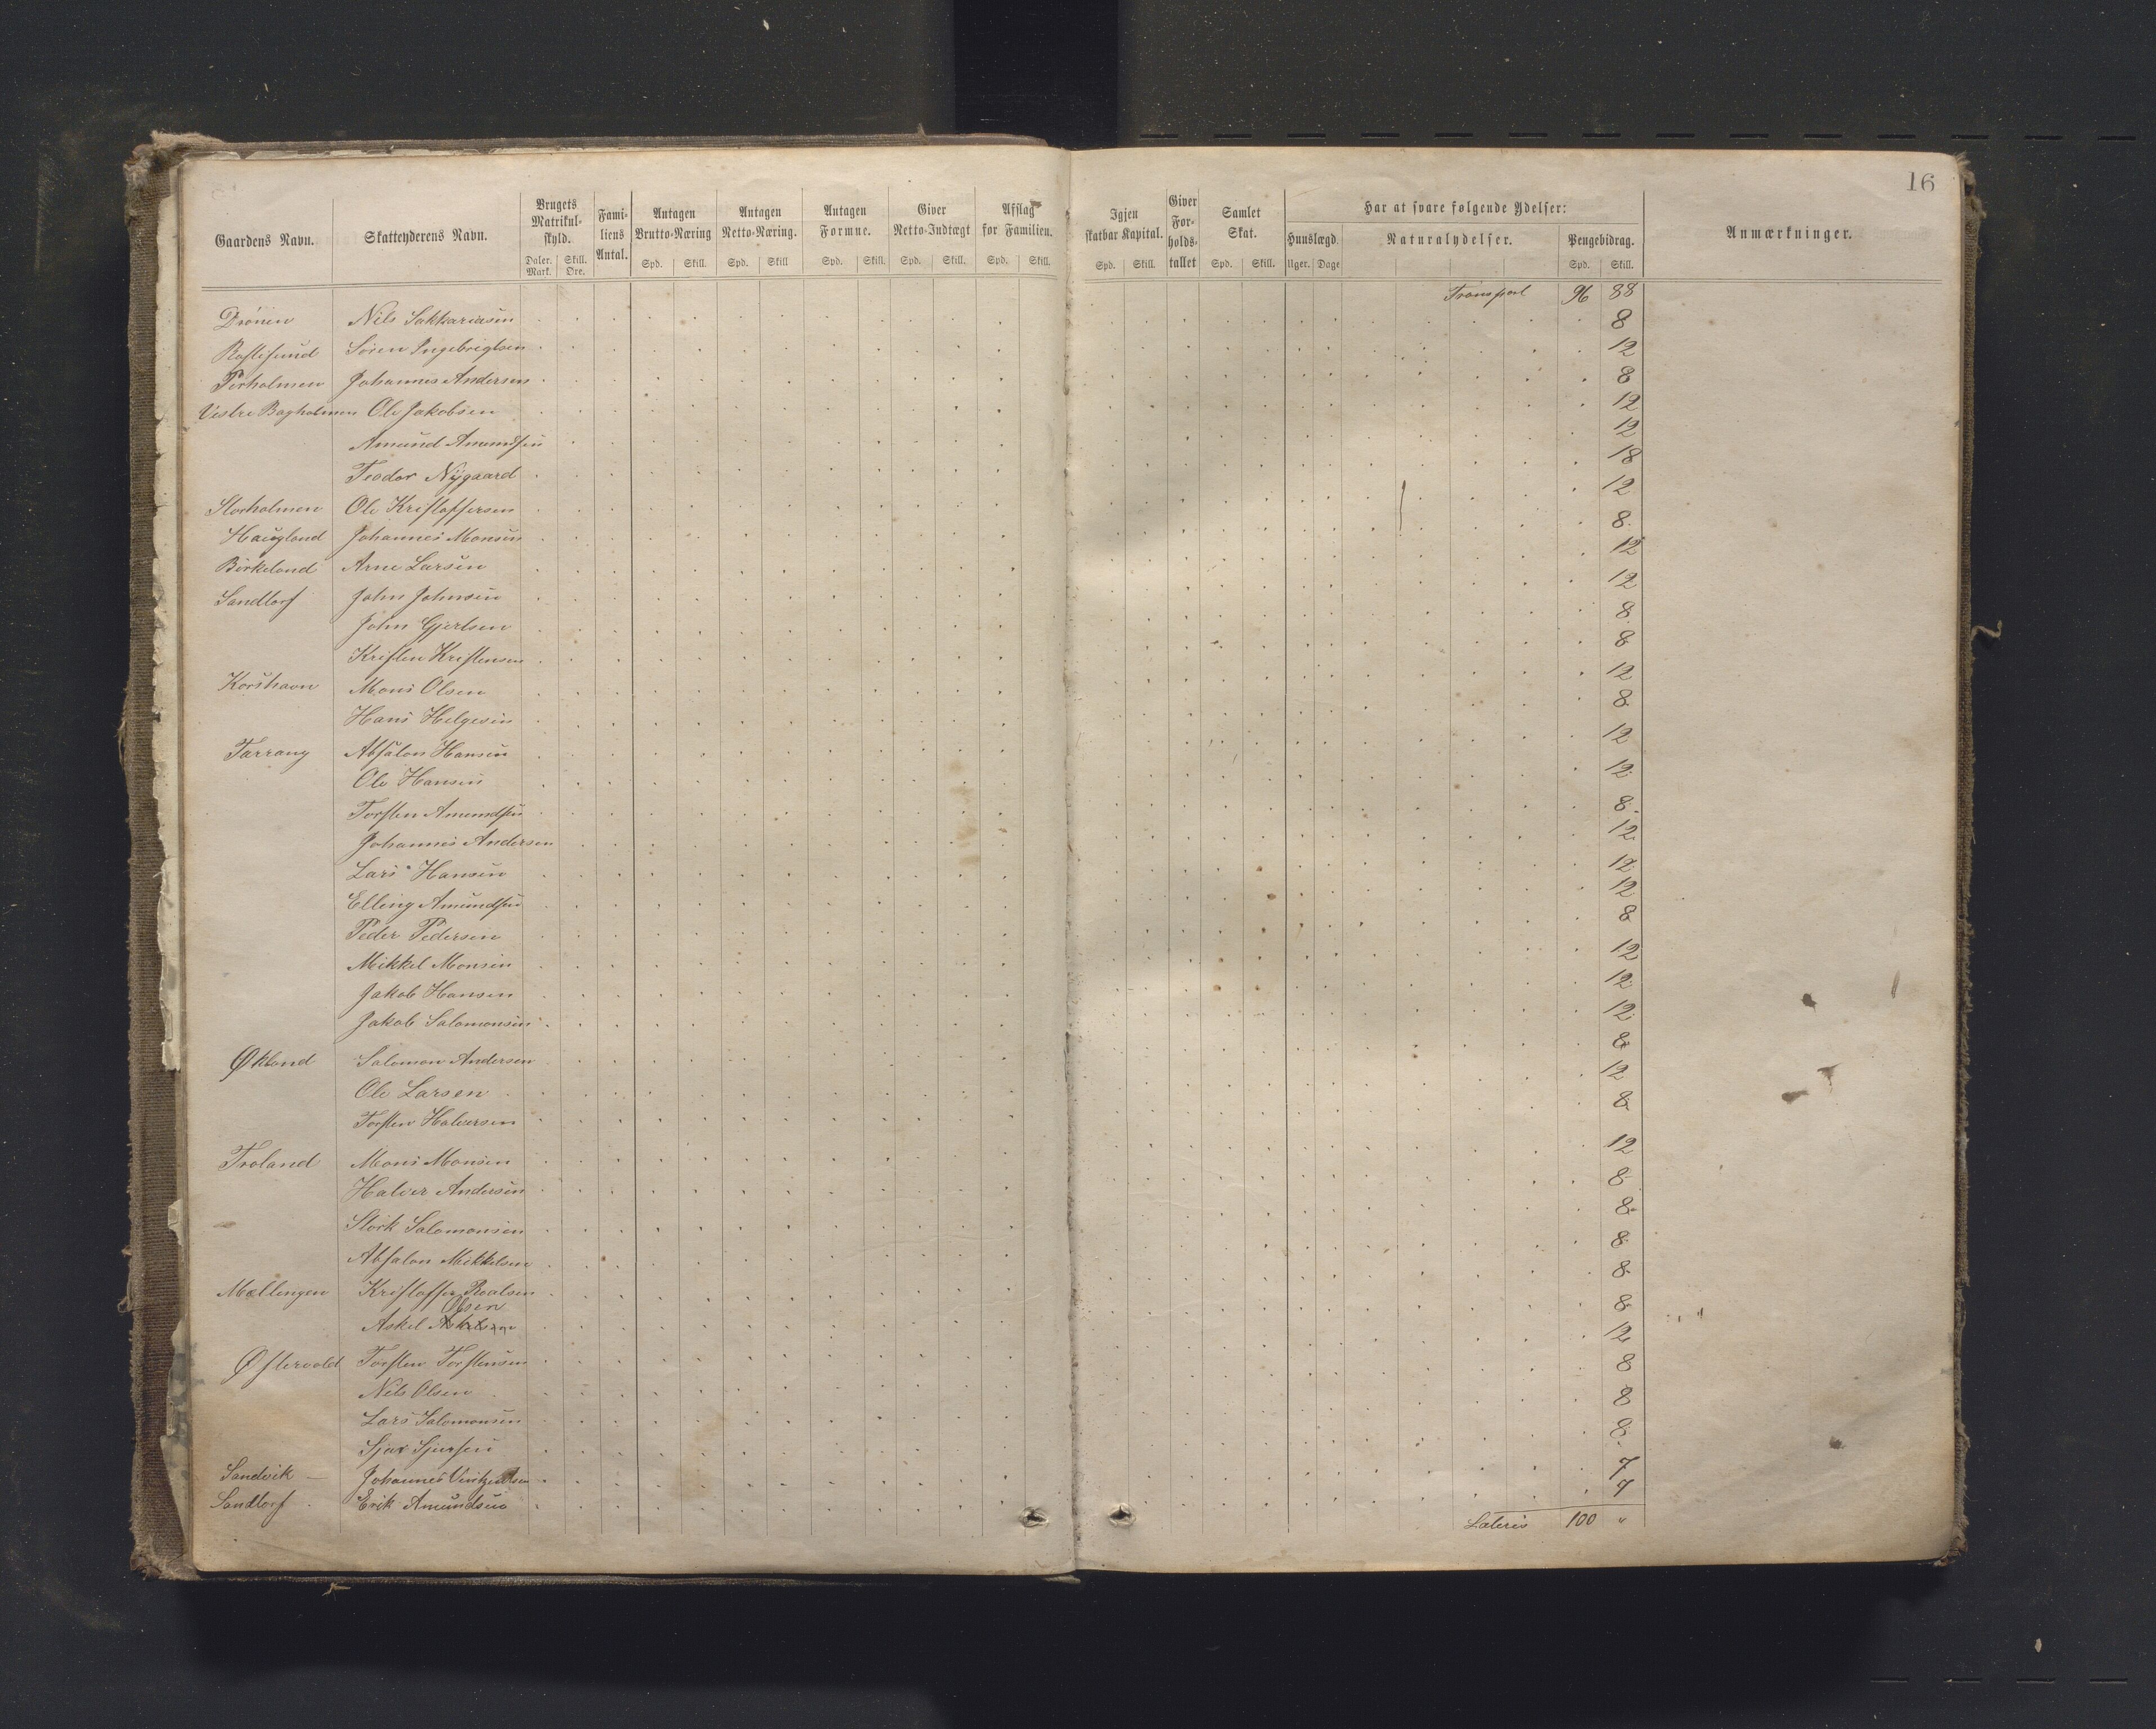 16
Gaardens Navn. Skatteyderens Navn. Brugets Matrikulskyld. Familiens Antal. Antagen Brutto-Næring Antagen Netto-Næring. Antagen Formue. Giver Netto-Indtægt Afslag for Familien. Igjen skatbar Kapital. Giver Forholdstallet Samlet Skat. Har at svare følgende Ydelser: Anmærkninger.
Hunslægd. Naturalydelser. Pengebidrag.
Daler. Mark. Skill. Øre. Spd. Skill. Spd. Skill Spd. Skill. Spd. Skill. Spd. Skill. Spd. Skill. Spd. Skill. Uger. Dage Spd. Skill.
Transport 96 88
Drönen Nils Sakkariasen 8
Rostesund Sören Ingebrigtsen 12
Perholmen Johannes Andersen 8
Vestre Bagholmen Ole Jakobsen 12
Amund Amundsen 12
Teodor Nygaard 18
Storholmen Ole Kristoffersen 12
Haugland Johannes Monsen 8
Birkeland Arne Larsen 12
Sandtorf John Johnsen 12
John Gjertsen 8
Kristen Kristensen 8
Korshavn Mons Olsen 12
Hans Helgesen 8
Tarrang Absalon Hansen 12
Ole Hansen 12
Torsten Amundsen 8
Johannes Andersen 12
Lars Hansen 12
Elling Amundsen 12
Peder Pedersen 8
Mikkel Monsen 12
Jakob Hansen 12
Jakob Salomonsen 12
Økland Salomon Andersen 8
Ole Larsen 12
Torsten Halversen 8
Troland Mons Monsen 12
Halver Andersen 8
Störk Salomonsen 8
Absalon Mikkelsen 8
Møllingen Kristoffer Roalsen 8
Olsen
Askel Askelsen 8
Østervold Torsten Torstensen 12
Nils Olsen 8
Lars Salomonsen 8
Sjur Sjursen 8
Sandvik Johannes 7
Sandtorf Erik Amundsen 7
Lateris 100 "